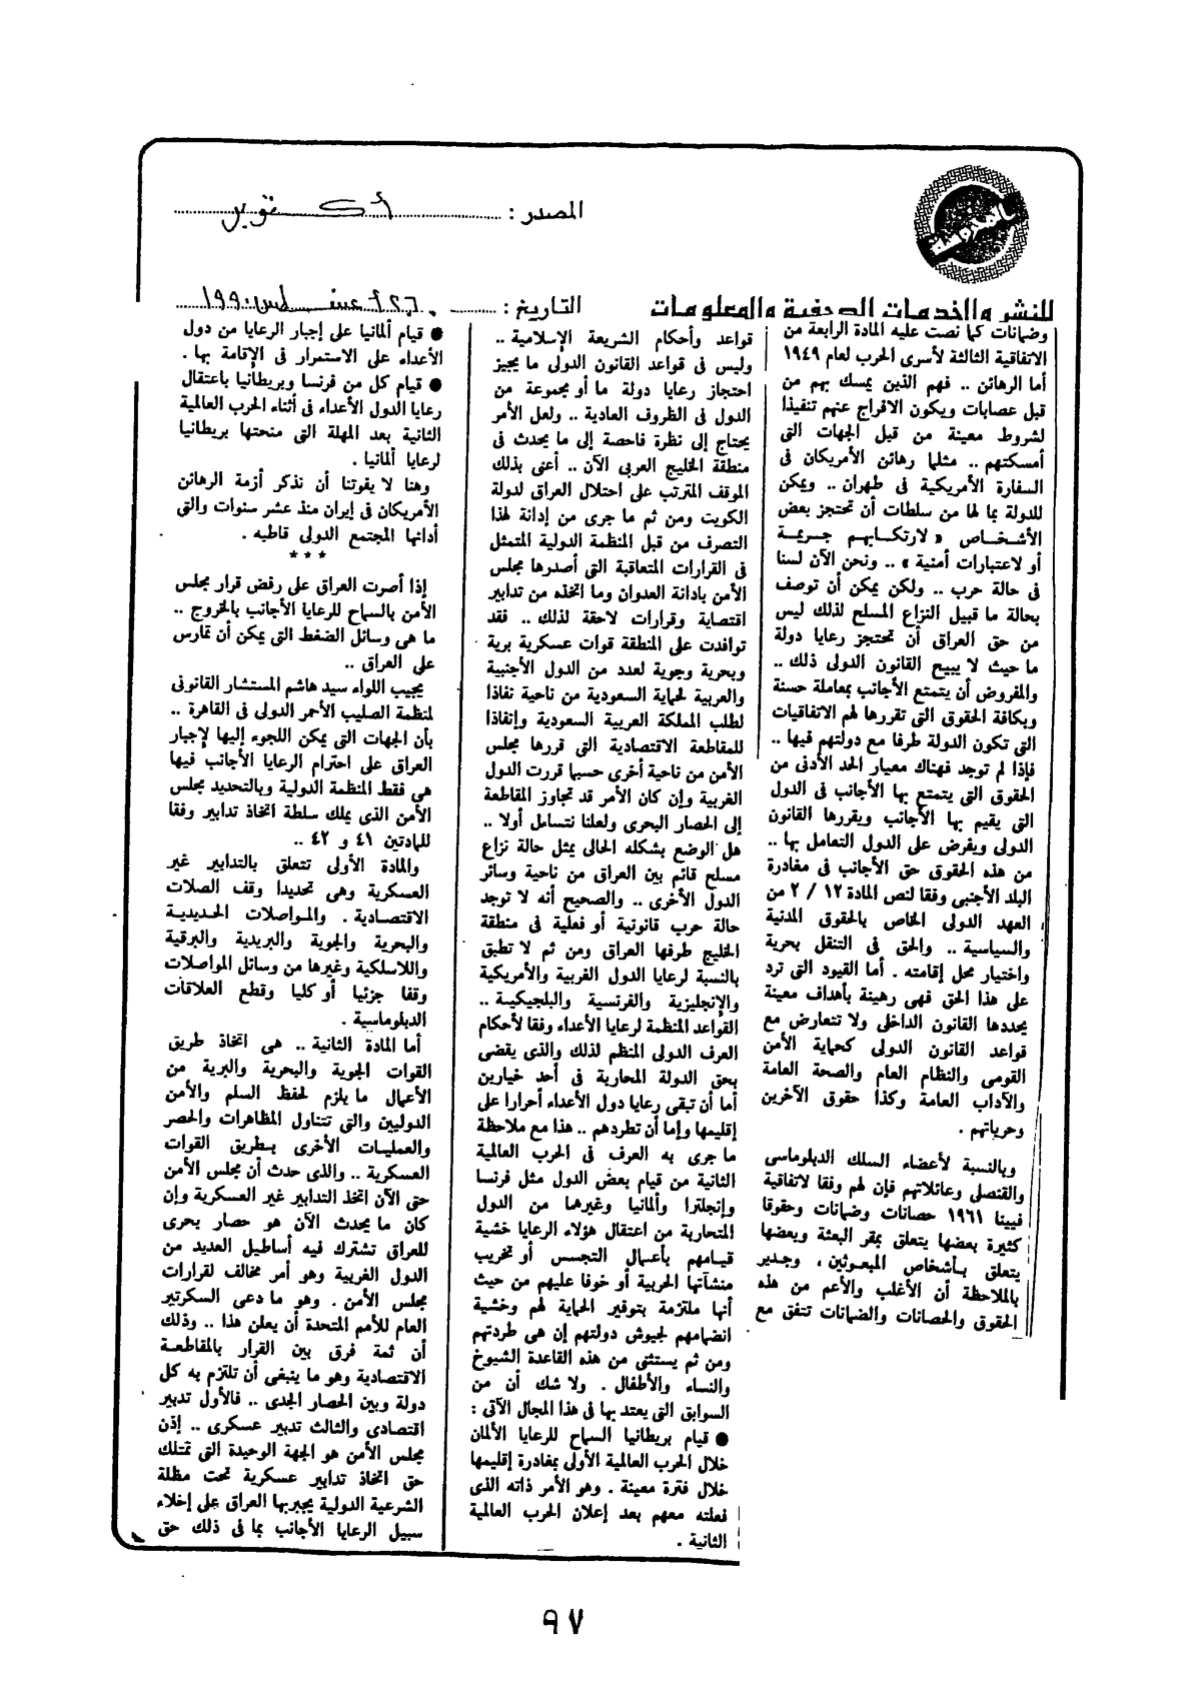 المصدر : أكتوبر
للنشر والخدمات الصحفية والمعلومات
التاريخ : ٢٦ أغسطس ١٩٩٠
وضمانات كما نصت عليه المادة الرابعة من
الاتفاقية الثالثة لأسرى الحرب لعام ١٩٤٩
أما الرهائن .. فهم الذين يمسك بهم من
قبل عصابات ويكون الافراج عنهم تنفيذا
لشروط معينة من قبل الجهات التى
أمسكتهم .. مثلما رهائن الأمريكان فى
السفارة الأمريكية فى طهران .. ويمكن
للدولة بما لها من سلطات أن تحتجز بعض
الأشخاص « لارتكابهم جريمة
أو لاعتبارات أمنية » .. ونحن الآن لسنا
فى حالة حرب .. ولكن يمكن أن توصف
بحالة ما قبيل النزاع المسلح لذلك ليس
من حق العراق أن تحتجز رعايا دولة
ما حيث لا يبيح القانون الدولى ذلك ..
والمفروض أن يتمتع الأجانب بمعاملة حسنة
وبكافة الحقوق التى تقررها لهم الاتفاقيات
التى تكون الدولة طرفا مع دولتهم فيها ..
فإذا لم توجد فهناك معيار الحد الأدنى من
الحقوق التى يتمتع بها الأجانب فى الدول
التى يقيم بها الأجانب ويقررها القانون
الدولى ويفرض على الدول التعامل بها ..
من هذه الحقوق حق الأجانب فى مغادرة
البلد الأجنبى وفقا لنص المادة ١٢ / ٢ من
العهد الدولى الخاص بالحقوق المدنية
والسياسية .. والحق فى التنقل بحرية
واختيار محل إقامته . أما القيود التى ترد
على هذا الحق فهى رهينة بأهداف معينة
يحددها القانون الداخلى ولا تتعارض مع
قواعد القانون الدولى كحماية الأمن
القومى والنظام العام والصحة العامة
والآداب العامة وكذا حقوق الآخرين
وحرياتهم .
وبالنسبة لأعضاء السلك الدبلوماسى
والقنصلى وعائلاتهم فإن لهم وفقا لاتفاقية
فيينا ١٩٦١ حصانات وضمانات وحقوقا
كثيرة بعضها يتعلق بمقر البعثة وبعضها
يتعلق بأشخاص المبعوثين ، وجدير
بالملاحظة أن الأغلب والأعم من هذه
الحقوق والحصانات والضمانات تتفق مع
قواعد وأحكام الشريعة الإسلامية ..
وليس فى قواعد القانون الدولى ما يجيز
احتجاز رعايا دولة ما أو مجموعة من
الدول فى الظروف العادية .. ولعل الأمر
يحتاج إلى نظرة فاحصة إلى ما يحدث فى
منطقة الخليج العربى الآن .. أعنى بذلك
الموقف المترتب على احتلال العراق لدولة
الكويت ومن ثم ما جرى من إدانة لهذا
التصرف من قبل المنظمة الدولية المتمثل
فى القرارات المتعاقبة التى أصدرها مجلس
الأمن بادانة العدوان وما اتخذه من تدابير
اقتصاية وقرارات لاحقة لذلك .. فقد
توافدت على المنطقة قوات عسكرية برية
وبحرية وجوية لعدد من الدول الأجنبية
والعربية لحماية السعودية من ناحية نفاذا
لطلب المملكة العربية السعودية وإنفاذا
للمقاطعة الاقتصادية التى قررها مجلس
الأمن من ناحية أخرى حسبما قررت الدول
الغربية وإن كان الأمر قد تجاوز المقاطعة
إلى الحصار البحرى ولعلنا نتساءل أولا ..
هل الوضع بشكله الحالى يمثل حالة نزاع
مسلح قائم بين العراق من ناحية وسائر
الدول الأخرى .. والصحيح أنه لا توجد
حالة حرب قانونية أو فعلية فى منطقة
الخليج طرفها العراق ومن ثم لا تطبق
بالنسبة لرعايا الدول الغربية والأمريكية
والإنجليزية والفرنسية والبلجيكية ..
القواعد المنظمة لرعايا الأعداء وفقا لأحكام
العرف الدولى المنظم لذلك والذى يقضى
بحق الدولة المحاربة فى أحد خيارين
أما أن تبقى رعايا دول الأعداء أحرارا على
إقليمها وإما أن تطردهم .. هذا مع ملاحظة
ما جرى به العرف فى الحرب العالمية
الثانية من قيام بعض الدول مثل فرنسا
وإنجلترا وألمانيا وغيرها من الدول
المتحاربة من اعتقال هؤلاء الرعايا خشية
قيامهم بأعمال التجسس أو تخريب
منشآتها الحربية أو خوفا عليهم من حيث
أنها ملتزمة بتوفير الحماية لهم وخشية
انضمامهم لجيوش دولتهم إن هى طردتهم
ومن ثم يستثنى من هذه القاعدة الشيوخ
والنساء والأطفال . ولا شك أن من
السوابق التى يعتد بها فى هذا المجال الآتى :
● قيام بريطانيا السماح للرعايا الألمان
خلال الحرب العالمية الأولى بمغادرة إقليمها
خلال فترة معينة . وهو الأمر ذاته الذى
فعلته معهم بعد إعلان الحرب العالمية
الثانية .
● قيام ألمانيا على إجبار الرعايا من دول
الأعداء على الاستمرار فى الإقامة بها .
● قيام كل من فرنسا وبريطانيا باعتقال
رعايا الدول الأعداء فى أثناء الحرب العالمية
الثانية بعد المهلة التى منحتها بريطانيا
لرعايا ألمانيا .
وهنا لا يفوتنا أن نذكر أزمة الرهائن
الأمريكان فى إيران منذ عشر سنوات والتى
أدانها المجتمع الدولى قاطبه .
* * *
إذا أصرت العراق على رفض قرار مجلس
الأمن بالسماح للرعايا الأجانب بالخروج ..
ما هى وسائل الضغط التى يمكن أن تمارس
على العراق ..
يجيب اللواء سيد هاشم المستشار القانونى
لمنظمة الصليب الأحمر الدولى فى القاهرة ..
بأن الجهات التى يمكن اللجوء إليها لإجبار
العراق على احترام الرعايا الأجانب فيها
هى فقط المنظمة الدولية وبالتحديد مجلس
الأمن الذى يملك سلطة اتخاذ تدابير وفقا
للمادتين ٤١ و ٤٢ ..
والمادة الأولى تتعلق بالتدابير غير
العسكرية وهى تحديدا وقف الصلات
الاقتصادية . والمواصلات الحديدية
والبحرية والجوية والبريدية والبرقية
واللاسلكية وغيرها من وسائل المواصلات
وقفا جزئيا أو كليا وقطع العلاقات
الدبلوماسية .
أما المادة الثانية .. هى اتخاذ طريق
القوات الجوية والبحرية والبرية من
الأعمال ما يلزم لحفظ السلم والأمن
الدوليين والتى تتناول المظاهرات والحصر
والعمليات الأخرى بطريق القوات
العسكرية .. والذى حدث أن مجلس الأمن
حتى الآن اتخذ التدابير غير العسكرية وإن
كان ما يحدث الآن هو حصار بحرى
للعراق تشترك فيه أساطيل العديد من
الدول الغربية وهو أمر مخالف لقرارات
مجلس الأمن . وهو ما دعى السكرتير
العام للأمم المتحدة أن يعلن هذا .. وذلك
أن ثمة فرق بين القرار بالمقاطعة
الاقتصادية وهو ما ينبغى أن تلتزم به كل
دولة وبين الحصار الجدى .. فالأول تدبير
اقتصادى والثالث تدبير عسكرى .. إذن
مجلس الأمن هو الجهة الوحيدة التى تمتلك
حق اتخاذ تدابير عسكرية تحت مظلة
الشرعية الدولية يجبر بها العراق على إخلاء
سبيل الرعايا الأجانب بما فى ذلك حق
٩٧